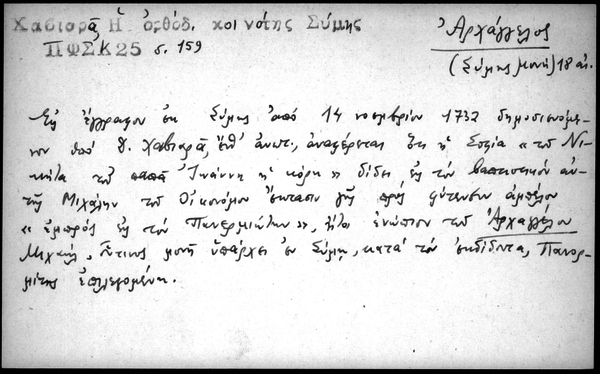 Χαβιαρᾶ, Ἡ ὀρθόδ. κοινότης Σύμης
ΠΦΣΚ 25 σ. 159
Ἀρχάγγελος
(Σύμης μονή) 18 αἰ.
Εἰς ἔγγραφον ἐκ Σύμης ἀπό 14 νοεμβρίου 1732 δημοσιευόμε-
νον ὑπό Δ. Χαβιαρᾶ, ἔνθ' ἀνωτ., ἀναφέρεται ὅτι ἡ Σοφία «τοῦ Νι-
κήτα τοῦ παπᾶ Ἰωάννη ἡ κόρη» δίδει εἰς τόν βαπτιστικόν αὐ-
τῆς Μιχάλην τοῦ Οἰκονόμου ἔκτασιν γῆς πρός φύτευσιν ἀμπέλου
«ἐμπρός εἰς τόν Πανερμιώτην», ἤτοι ἐνώπιον τοῦ Ἀρχαγγέλου
Μιχαήλ, οὗτινος μονή ὑπάρχει ἐν Σύμῃ, κατά τόν ἐκδίδοντα, Πανορ-
μίτης ἐπιλεγομένη.